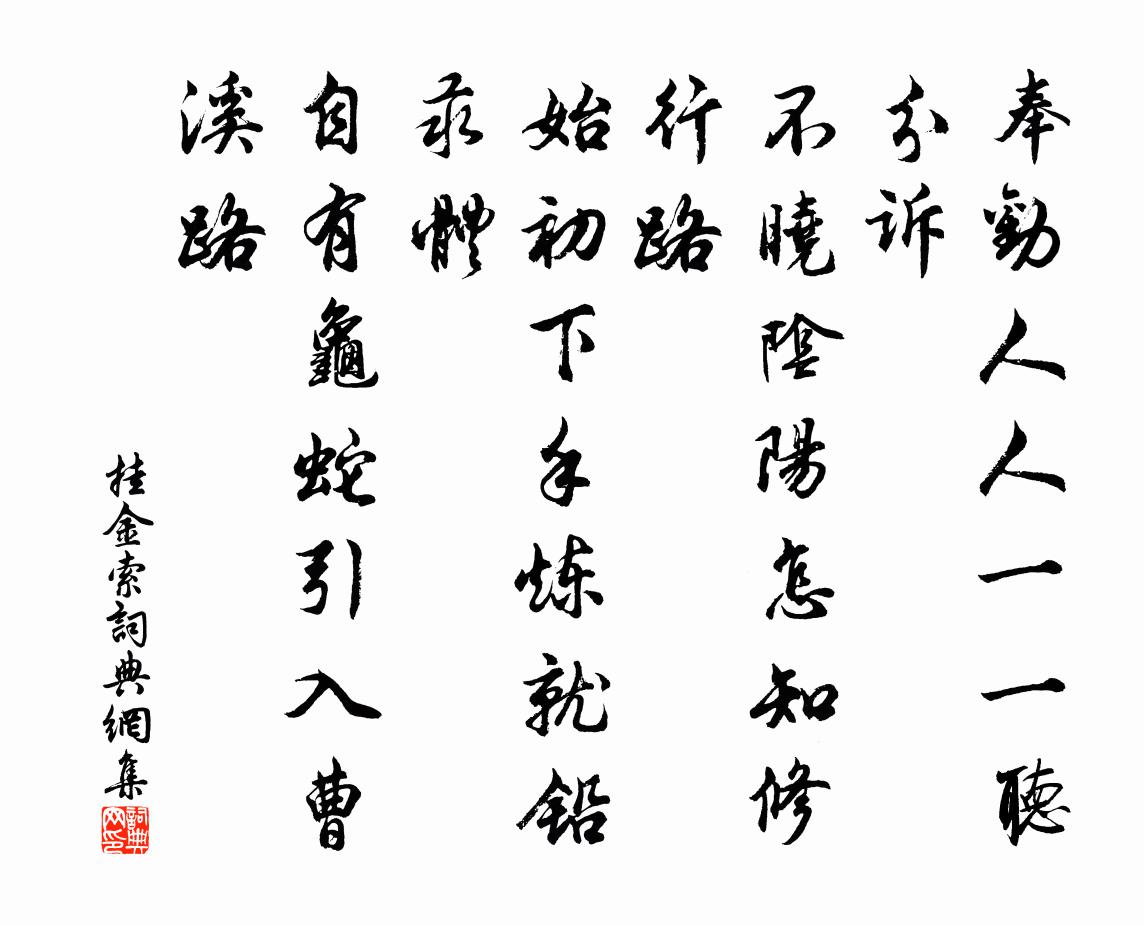 奉勸人人一一聽
分訴
不曉陰陽怎知修
行路
始初下手炼就鉛
汞體
自有龜蛇引入曹
溪路
挂金索詞典網集
詞典
网印